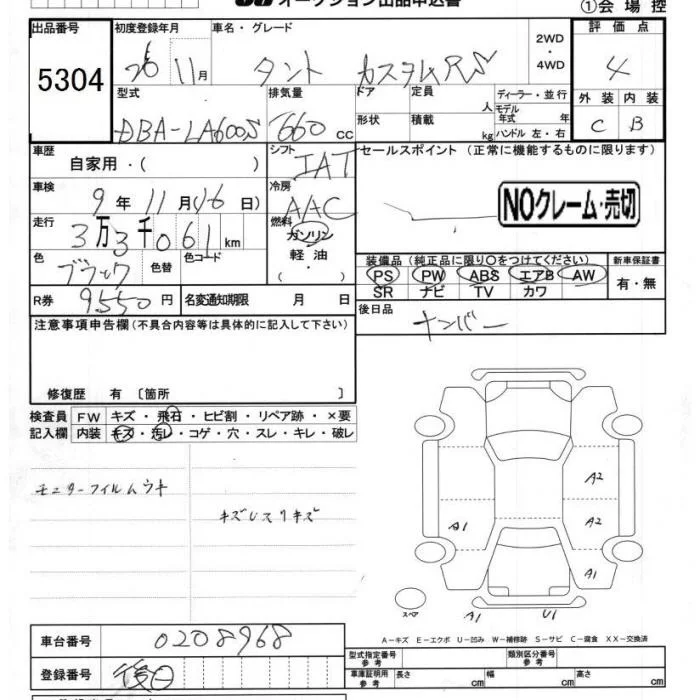 オークション出品申込書
①会場控
出品番号 初度登録年月 車名・グレード 2WD・4WD 評価点
5304 26 11月 タント カスタムRS 4
型式 排気量 ドア 定員 人 ディーラー・並行 外装 内装
DBA-LA600S 660 cc 形状 積載 kg モデル年式 年 ハンドル 左・右 C B
車歴 自家用・( ) シフト IAT セールスポイント (正常に機能するものに限ります)
車検 9年 11月(16日) 冷房 AAC NOクレーム・売切
走行 3万3千061km 燃料 ガソリン
軽油・( )
色 ブラック 色替 色コード
装備品 (純正品に限り○をつけてください) 新車保証書
PS PW ABS エアB AW 有・無
SR ナビ TV カワ
R券 9550円 名変通知期限 月 日
後日品 ナンバー
注意事項申告欄(不具合内容等は具体的に記入して下さい)
修復歴 有 〔箇所 〕
検査員 FW キズ・飛石・ヒビ割・リペア跡・×要
記入欄 内装 キズ・汚レ・コゲ・穴・スレ・キレ・破レ
モニターフイルムウキ
キズUスリキズ
A2
A1 A2
A1
スペア A1 U1
A-キズ E-エクボ U-凹み W-補修跡 S-サビ C-腐食 XX-交換済
車台番号 0208968
型式指定番号 参考 類別区分番号 参考
登録番号 後日
車庫証明用 参考 長さ cm 幅 cm 高さ cm